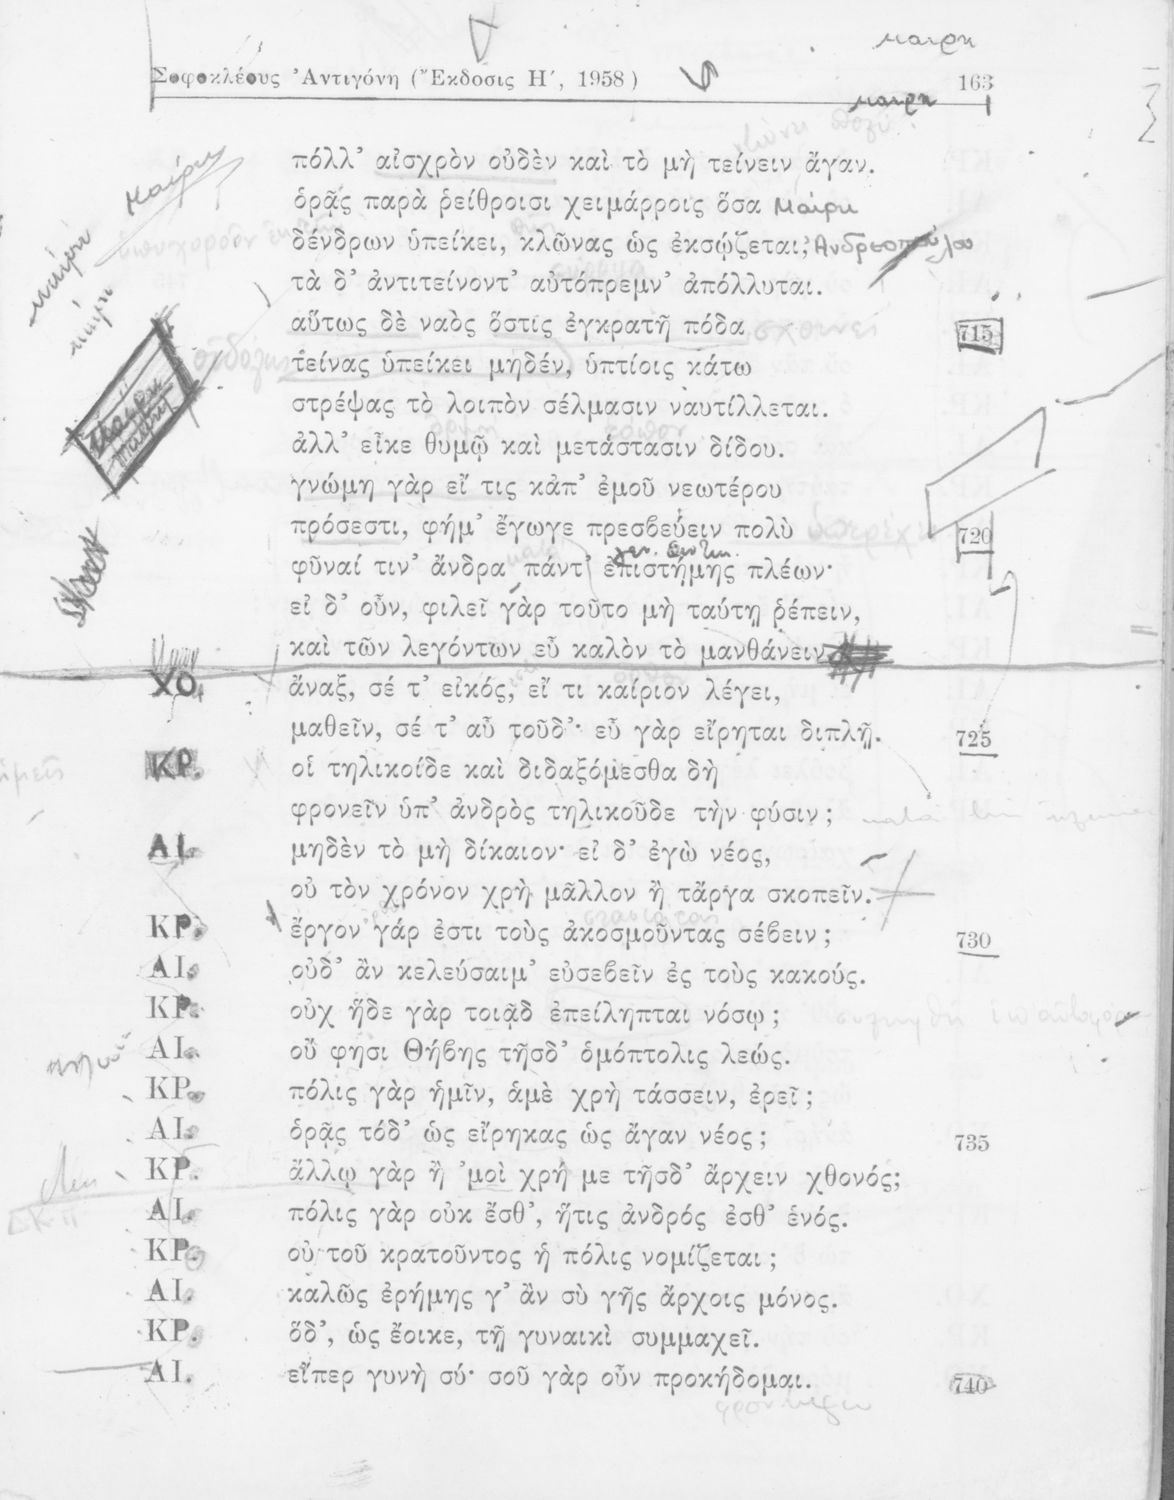 μαιρη
Σοφοκλέους Ἀντιγόνη (Ἔκδοσις Η΄, 1958)
163
μαιρη
πόλλ’ αἰσχρὸν οὐδὲν καὶ τὸ μὴ τείνειν ἄγαν.
Μαίρη
ὁρᾷς παρὰ ῥείθροισι χειμάρροις ὅσα Μαίρη
δένδρων ὑπείκει, κλῶνας ὡς ἐκσῴζεται; Ανδρεοπούλου
μαίρη
τὰ δ’ ἀντιτείνοντ’ αὐτόπρεμν’ ἀπόλλυται.
μαίρη
αὕτως δὲ ναὸς ὅστις ἐγκρατῆ πόδα
715
τείνας ὑπείκει μηδέν, ὑπτίοις κάτω
στρέψας τὸ λοιπὸν σέλμασιν ναυτίλλεται.
ἀλλ’ εἶκε θυμῷ καὶ μετάστασιν δίδου.
γνώμη γὰρ εἴ τις κἀπ’ ἐμοῦ νεωτέρου
πρόσεστι, φήμ’ ἔγωγε πρεσβεύειν πολὺ
720
φῦναί τιν’ ἄνδρα πάντ’ ἐπιστήμης πλέων·
εἰ δ’ οὖν, φιλεῖ γὰρ τοῦτο μὴ ταύτῃ ῥέπειν,
καὶ τῶν λεγόντων εὖ καλὸν τὸ μανθάνειν
ΧΟ. ἄναξ, σέ τ’ εἰκός, εἴ τι καίριον λέγει,
μαθεῖν, σέ τ’ αὖ τοῦδ’· εὖ γὰρ εἴρηται διπλῇ.
725
ΚΡ. οἱ τηλικοίδε καὶ διδαξόμεσθα δὴ
φρονεῖν ὑπ’ ἀνδρὸς τηλικοῦδε τὴν φύσιν;
ΑΙ. μηδὲν τὸ μὴ δίκαιον· εἰ δ’ ἐγὼ νέος,
οὐ τὸν χρόνον χρὴ μᾶλλον ἢ τἄργα σκοπεῖν.
ΚΡ. ἔργον γάρ ἐστι τοὺς ἀκοσμοῦντας σέβειν;
730
ΑΙ. οὐδ’ ἂν κελεύσαιμ’ εὐσεβεῖν ἐς τοὺς κακούς.
ΚΡ. οὐχ ἥδε γὰρ τοιᾷδ ἐπείληπται νόσῳ;
ΑΙ. οὔ φησι Θήβης τῆσδ’ ὁμόπτολις λεώς.
ΚΡ. πόλις γὰρ ἡμῖν, ἁμὲ χρὴ τάσσειν, ἐρεῖ;
ΑΙ. ὁρᾷς τόδ’ ὡς εἴρηκας ὡς ἄγαν νέος;
735
ΚΡ. ἄλλῳ γὰρ ἢ ’μοὶ χρή με τῆσδ’ ἄρχειν χθονός;
ΑΙ. πόλις γὰρ οὐκ ἔσθ’, ἥτις ἀνδρός ἐσθ’ ἑνός.
ΚΡ. οὐ τοῦ κρατοῦντος ἡ πόλις νομίζεται;
ΑΙ. καλῶς ἐρήμης γ’ ἂν σὺ γῆς ἄρχοις μόνος.
ΚΡ. ὅδ’, ὡς ἔοικε, τῇ γυναικὶ συμμαχεῖ.
ΑΙ. εἴπερ γυνὴ σύ· σοῦ γὰρ οὖν προκήδομαι.
740